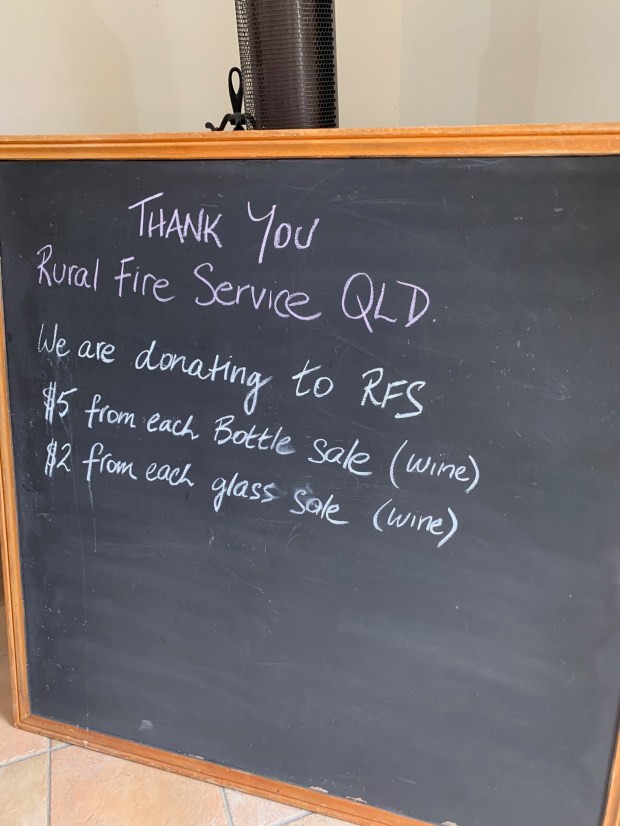 THANK YOU
Rural Fire Service QLD.
We are donating to RFS
$5 from each Bottle sale (wine)
$2 from each glass sale (wine)